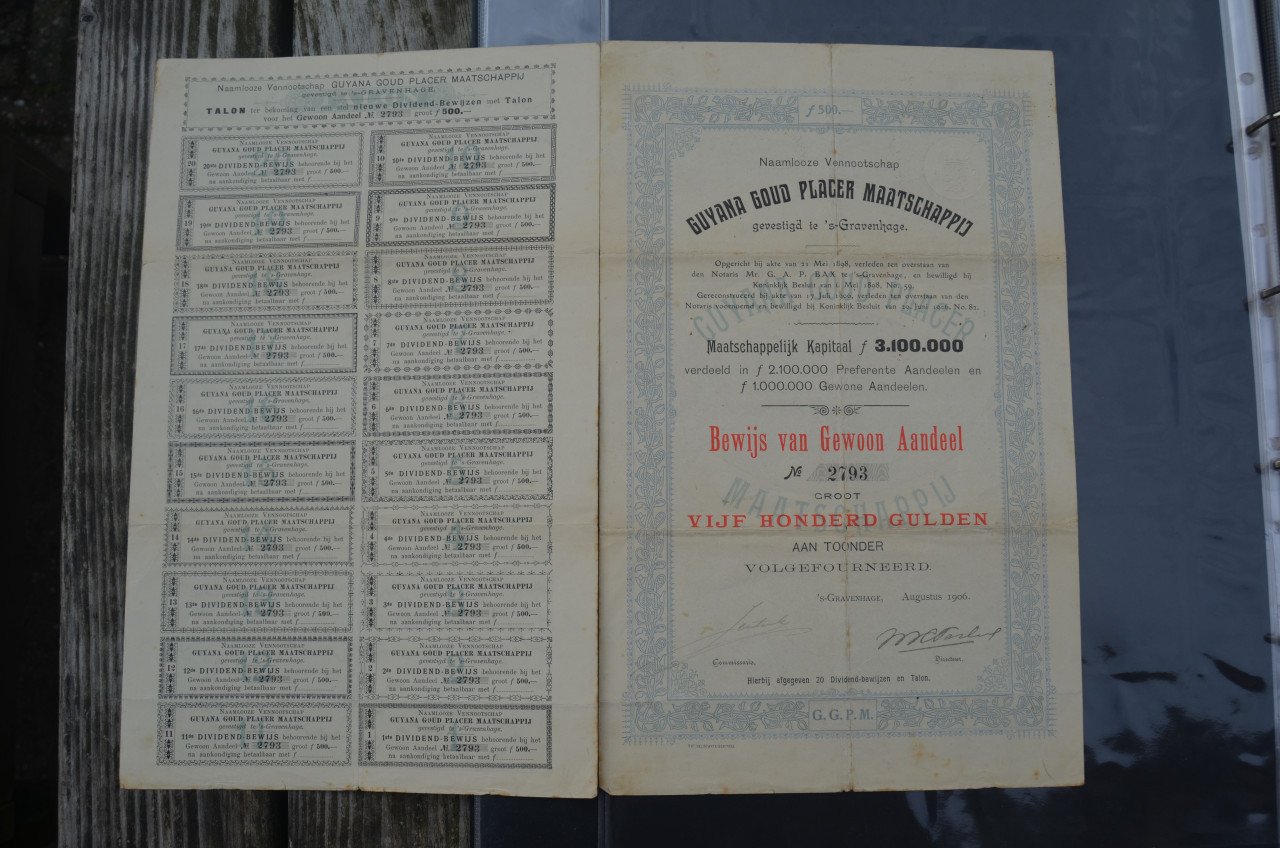 Naamlooze Vennootschap GUYANA GOUD PLACER MAATSCHAPPIJ
gevestigd te 's-GRAVENHAGE.
TALON ter bekoming van een stel nieuwe Dividend-Bewijzen met Talon
voor het Gewoon Aandeel № 2793 groot ƒ 500.—
20
NAAMLOOZE VENNOOTSCHAP
GUYANA GOUD PLACER MAATSCHAPPIJ
gevestigd te 's-Gravenhage.
20ste DIVIDEND-BEWIJS behoorende bij het
Gewoon Aandeel № 2793 groot ƒ 500.—
na aankondiging betaalbaar met ƒ
19
NAAMLOOZE VENNOOTSCHAP
GUYANA GOUD PLACER MAATSCHAPPIJ
gevestigd te 's-Gravenhage.
19de DIVIDEND-BEWIJS behoorende bij het
Gewoon Aandeel № 2793 groot ƒ 500.—
na aankondiging betaalbaar met ƒ
18
NAAMLOOZE VENNOOTSCHAP
GUYANA GOUD PLACER MAATSCHAPPIJ
gevestigd te 's-Gravenhage.
18de DIVIDEND-BEWIJS behoorende bij het
Gewoon Aandeel № 2793 groot ƒ 500.—
na aankondiging betaalbaar met ƒ
17
NAAMLOOZE VENNOOTSCHAP
GUYANA GOUD PLACER MAATSCHAPPIJ
gevestigd te 's-Gravenhage.
17de DIVIDEND-BEWIJS behoorende bij het
Gewoon Aandeel № 2793 groot ƒ 500.—
na aankondiging betaalbaar met ƒ
16
NAAMLOOZE VENNOOTSCHAP
GUYANA GOUD PLACER MAATSCHAPPIJ
gevestigd te 's-Gravenhage.
16de DIVIDEND-BEWIJS behoorende bij het
Gewoon Aandeel № 2793 groot ƒ 500.—
na aankondiging betaalbaar met ƒ
15
NAAMLOOZE VENNOOTSCHAP
GUYANA GOUD PLACER MAATSCHAPPIJ
gevestigd te 's-Gravenhage.
15de DIVIDEND-BEWIJS behoorende bij het
Gewoon Aandeel № 2793 groot ƒ 500.—
na aankondiging betaalbaar met ƒ
14
NAAMLOOZE VENNOOTSCHAP
GUYANA GOUD PLACER MAATSCHAPPIJ
gevestigd te 's-Gravenhage.
14de DIVIDEND-BEWIJS behoorende bij het
Gewoon Aandeel № 2793 groot ƒ 500.—
na aankondiging betaalbaar met ƒ
13
NAAMLOOZE VENNOOTSCHAP
GUYANA GOUD PLACER MAATSCHAPPIJ
gevestigd te 's-Gravenhage.
13de DIVIDEND-BEWIJS behoorende bij het
Gewoon Aandeel № 2793 groot ƒ 500.—
na aankondiging betaalbaar met ƒ
12
NAAMLOOZE VENNOOTSCHAP
GUYANA GOUD PLACER MAATSCHAPPIJ
gevestigd te 's-Gravenhage.
12de DIVIDEND-BEWIJS behoorende bij het
Gewoon Aandeel № 2793 groot ƒ 500.—
na aankondiging betaalbaar met ƒ
11
NAAMLOOZE VENNOOTSCHAP
GUYANA GOUD PLACER MAATSCHAPPIJ
gevestigd te 's-Gravenhage.
11de DIVIDEND-BEWIJS behoorende bij het
Gewoon Aandeel № 2793 groot ƒ 500.—
na aankondiging betaalbaar met ƒ
10
NAAMLOOZE VENNOOTSCHAP
GUYANA GOUD PLACER MAATSCHAPPIJ
gevestigd te 's-Gravenhage.
10de DIVIDEND-BEWIJS behoorende bij het
Gewoon Aandeel № 2793 groot ƒ 500.—
na aankondiging betaalbaar met ƒ
9
NAAMLOOZE VENNOOTSCHAP
GUYANA GOUD PLACER MAATSCHAPPIJ
gevestigd te 's-Gravenhage.
9de DIVIDEND-BEWIJS behoorende bij het
Gewoon Aandeel № 2793 groot ƒ 500.—
na aankondiging betaalbaar met ƒ
8
NAAMLOOZE VENNOOTSCHAP
GUYANA GOUD PLACER MAATSCHAPPIJ
gevestigd te 's-Gravenhage.
8ste DIVIDEND-BEWIJS behoorende bij het
Gewoon Aandeel № 2793 groot ƒ 500.—
na aankondiging betaalbaar met ƒ
7
NAAMLOOZE VENNOOTSCHAP
GUYANA GOUD PLACER MAATSCHAPPIJ
gevestigd te 's-Gravenhage.
7de DIVIDEND-BEWIJS behoorende bij het
Gewoon Aandeel № 2793 groot ƒ 500.—
na aankondiging betaalbaar met ƒ
6
NAAMLOOZE VENNOOTSCHAP
GUYANA GOUD PLACER MAATSCHAPPIJ
gevestigd te 's-Gravenhage.
6de DIVIDEND-BEWIJS behoorende bij het
Gewoon Aandeel № 2793 groot ƒ 500.—
na aankondiging betaalbaar met ƒ
5
NAAMLOOZE VENNOOTSCHAP
GUYANA GOUD PLACER MAATSCHAPPIJ
gevestigd te 's-Gravenhage.
5de DIVIDEND-BEWIJS behoorende bij het
Gewoon Aandeel № 2793 groot ƒ 500.—
na aankondiging betaalbaar met ƒ
4
NAAMLOOZE VENNOOTSCHAP
GUYANA GOUD PLACER MAATSCHAPPIJ
gevestigd te 's-Gravenhage.
4de DIVIDEND-BEWIJS behoorende bij het
Gewoon Aandeel № 2793 groot ƒ 500.—
na aankondiging betaalbaar met ƒ
3
NAAMLOOZE VENNOOTSCHAP
GUYANA GOUD PLACER MAATSCHAPPIJ
gevestigd te 's-Gravenhage.
3de DIVIDEND-BEWIJS behoorende bij het
Gewoon Aandeel № 2793 groot ƒ 500.—
na aankondiging betaalbaar met ƒ
2
NAAMLOOZE VENNOOTSCHAP
GUYANA GOUD PLACER MAATSCHAPPIJ
gevestigd te 's-Gravenhage.
2de DIVIDEND-BEWIJS behoorende bij het
Gewoon Aandeel № 2793 groot ƒ 500.—
na aankondiging betaalbaar met ƒ
1
NAAMLOOZE VENNOOTSCHAP
GUYANA GOUD PLACER MAATSCHAPPIJ
gevestigd te 's-Gravenhage.
1ste DIVIDEND-BEWIJS behoorende bij het
Gewoon Aandeel № 2793 groot ƒ 500.—
na aankondiging betaalbaar met ƒ
ƒ 500.—
Naamlooze Vennootschap
GUYANA GOUD PLACER MAATSCHAPPIJ
gevestigd te 's-Gravenhage.
Opgericht bij akte van 21 Mei 1898, verleden ten overstaan van
den Notaris Mr. G. A. P. BAX te 's-Gravenhage, en bewilligd bij
Koninklijk Besluit van 1 Mei 1898, No. 59.
Gereconstrueerd bij akte van 17 Juli 1906, verleden ten overstaan van den
Notaris voornoemd en bewilligd bij Koninklijk Besluit van 29 Juni 1906, No. 82.
GUYANA GOUD PLACER
Maatschappelijk Kapitaal ƒ 3.100.000
verdeeld in ƒ 2.100.000 Preferente Aandeelen en
ƒ 1.000.000 Gewone Aandeelen.
Bewijs van Gewoon Aandeel
№ 2793
MAATSCHAPPIJ
GROOT
VIJF HONDERD GULDEN
AAN TOONDER
VOLGEFOURNEERD.
'S-GRAVENHAGE, Augustus 1906.
Commissaris.
Directeur.
Hierbij afgegeven 20 Dividend-bewijzen en Talon.
G.G.P.M.